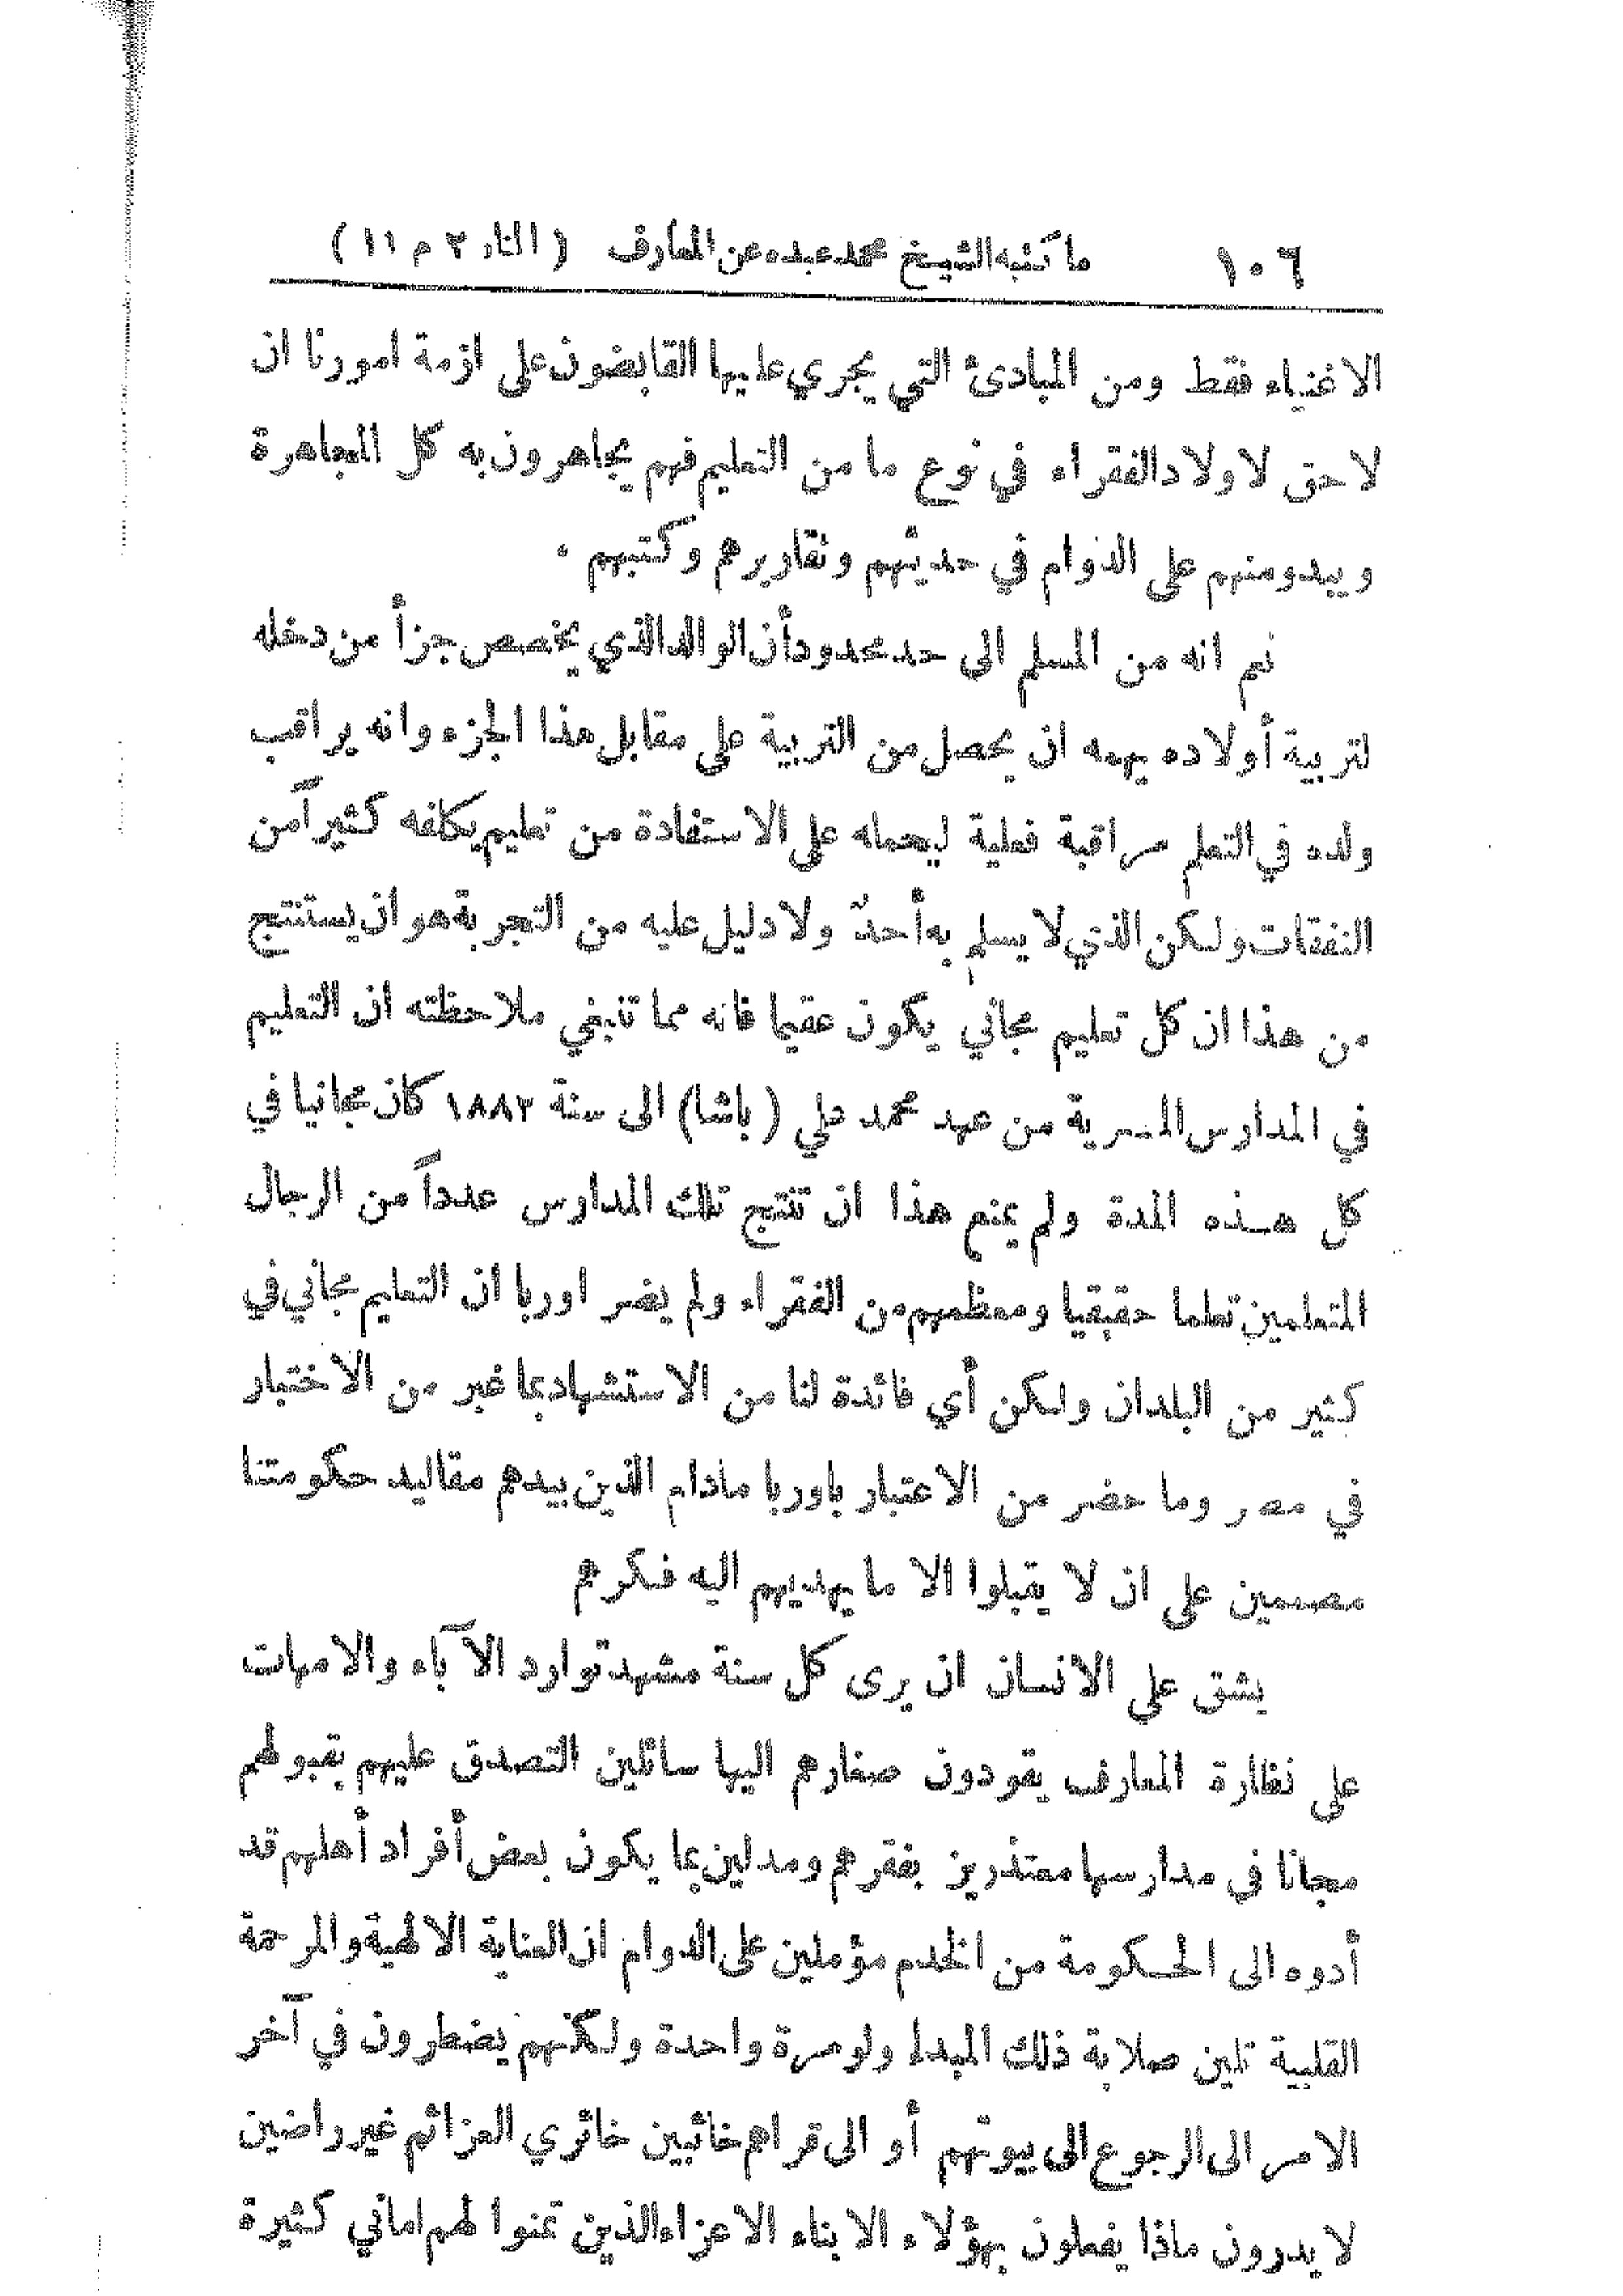 ١٠٦ ما كتبه الشيخ محمد عبده عن المعارف (المنار ٢ م ١١)
الاغنياء فقط ومن المبادئ التي يجري عليها القابضون على ازمة امورنا ان
لا حق لاولاد الفقراء في نوع ما من التعليم فهم يجاهرون به كل المجاهرة
ويبدو منهم على الدوام في حديثهم وتقاريرهم وكتبهم .
نعم انه من المسلم الى حد محدود أن الوالد الذي يخصص جزأ من دخله
لتربية أولاده يهمه ان يحصل من التربية على مقابل هذا الجزء وانه يراقب
ولده في التعلم مراقبة فعلية ليحمله على الاستفادة من تعليم يكلفه كثيراً من
النفقات ولكن الذي لا يسلم به أحدٌ ولا دليل عليه من التجربة هو ان يستنتج
من هذا ان كل تعليم مجاني يكون عقيما فانه مما تنبغي ملاحظته ان التعليم
في المدارس المصرية من عهد محمد علي (باشا) الى سنة ١٨٨٢ كان مجانيا في
كل هـذه المدة ولم يمنع هذا ان تنتج تلك المدارس عدداً من الرجال
المتعلمين تعلما حقيقيا ومعظمهم من الفقراء ولم يضر اوربا ان التعليم مجاني في
كثير من البلدان ولكن أي فائدة لنا من الاستشهاد بما غبر من الاختبار
في مصر وما حضر من الاعتبار باوربا مادام الذين بيدهم مقاليد حكومتنا
مصممين على ان لا يقبلوا الا ما يهديهم اليه فكرهم
يشق على الانسان ان يرى كل سنة مشهد توارد الآباء والامهات
على نظارة المعارف يقودون صغارهم اليها سائلين التصدق عليهم بقبولهم
مجانا في مدارسها معتذرين بفقرهم ومدلين بما يكون بعض أفراد أهلهم قد
أدوه الى الحـكومة من الخدم مؤملين على الدوام ان العناية الالهية والمرحمة
القلبية تلين صلابة ذلك المبدإ ولو مرة واحدة ولكنهم يضطرون في آخر
الامر الى الرجوع الى بيوتهم أو الى قراهم خائبين خائري العزائم غير راضين
لا يدرون ماذا يفعلون بهؤلاء الابناء الاعزاء الذين تمنوا لهم اماني كثيرة